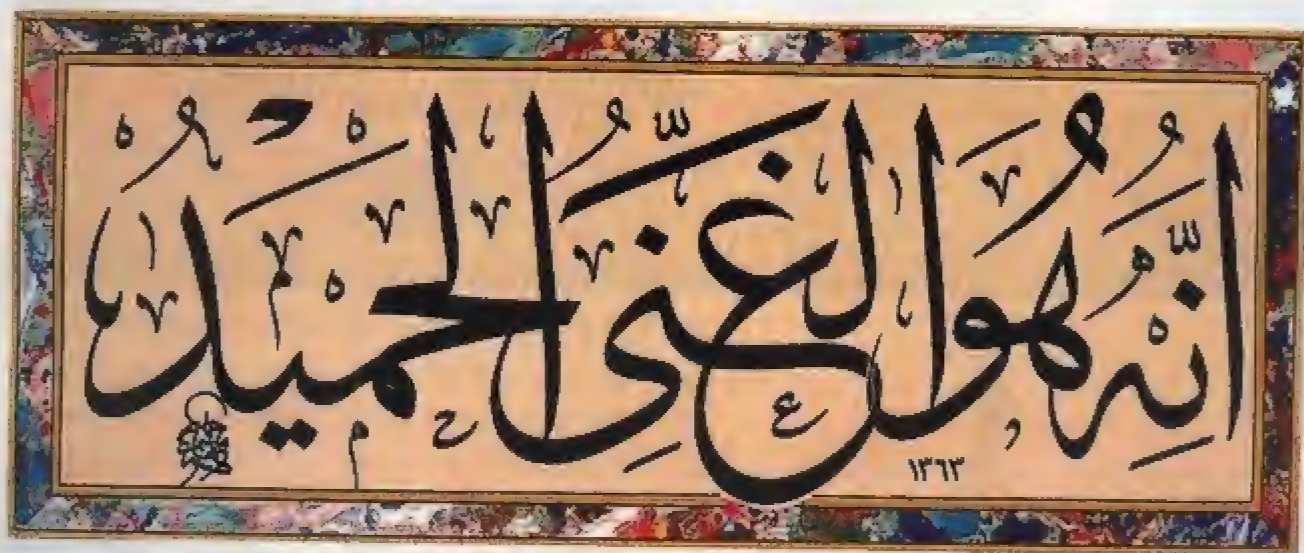 إنه هو الغني الحميد
١٣٦٣